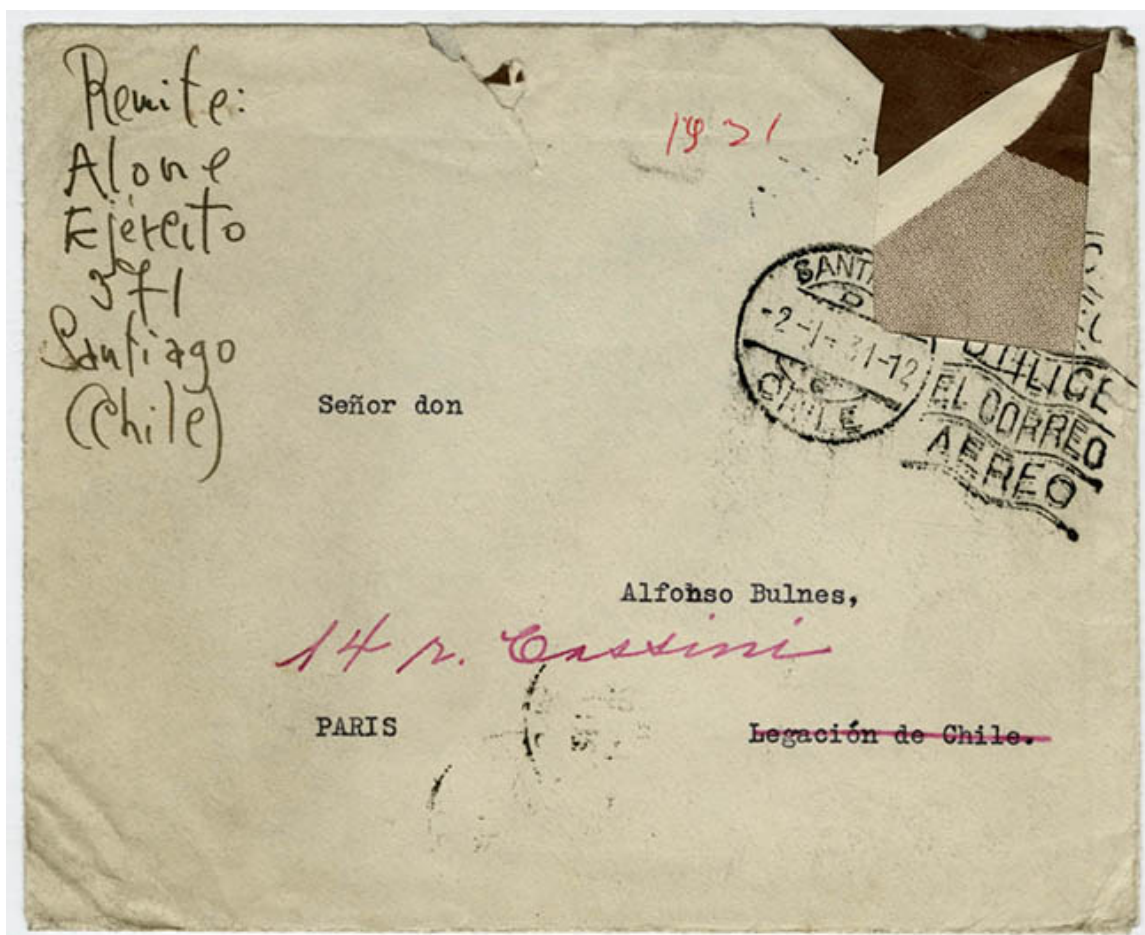 Remite:
Alone
Ejército
371
Santiago
(Chile)
1931
SANTI
D
-2-1-31-12
C
CHILE
UTILICE
EL CORREO
AEREO
Señor don
Alfonso Bulnes,
14 r. Cassini
PARIS
Legación de Chile.